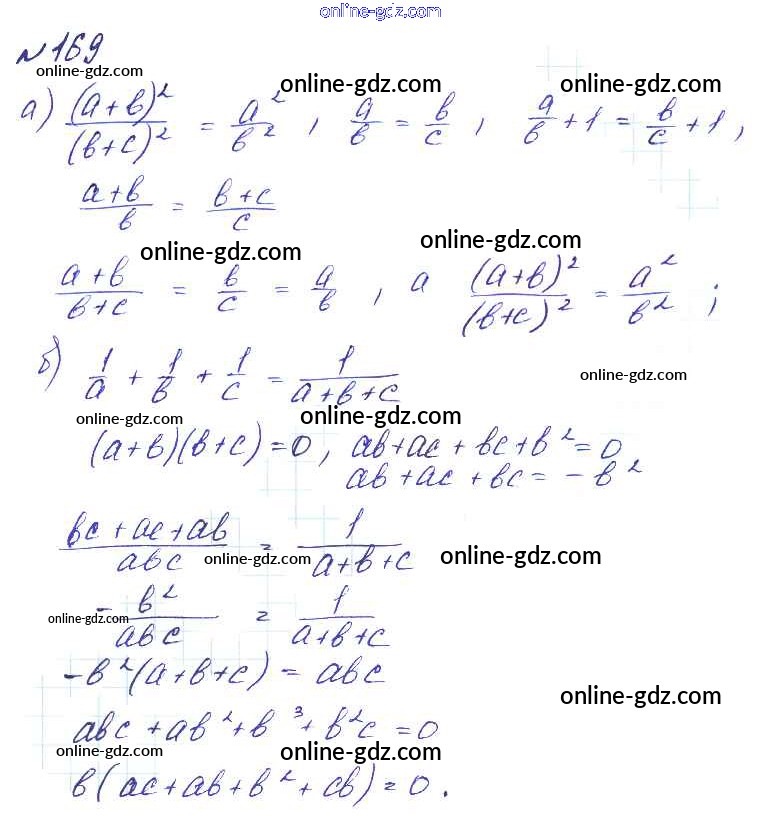 online-gdz.com
№169
online-gdz.com online-gdz.com online-gdz.com
а) (a+b)²/(b+c)² = a²/b² , a/b = b/c , a/b + 1 = b/c + 1 ,
(a+b)/b = (b+c)/c
online-gdz.com online-gdz.com
(a+b)/(b+c) = b/c = a/b , а (a+b)²/(b+c)² = a²/b² ;
б) 1/a + 1/b + 1/c = 1/(a+b+c)
online-gdz.com
online-gdz.com online-gdz.com
(a+b)(b+c)=0, ab+ac+bc+b²=0
ab+ac+bc=-b²
(bc+ac+ab)/abc = 1/(a+b+c)
online-gdz.com online-gdz.com
-b²/abc = 1/(a+b+c)
online-gdz.com
-b²(a+b+c) = abc
online-gdz.com
abc+ab²+b³+b²c=0
online-gdz.com online-gdz.com
b(ac+ab+b²+cb)=0.